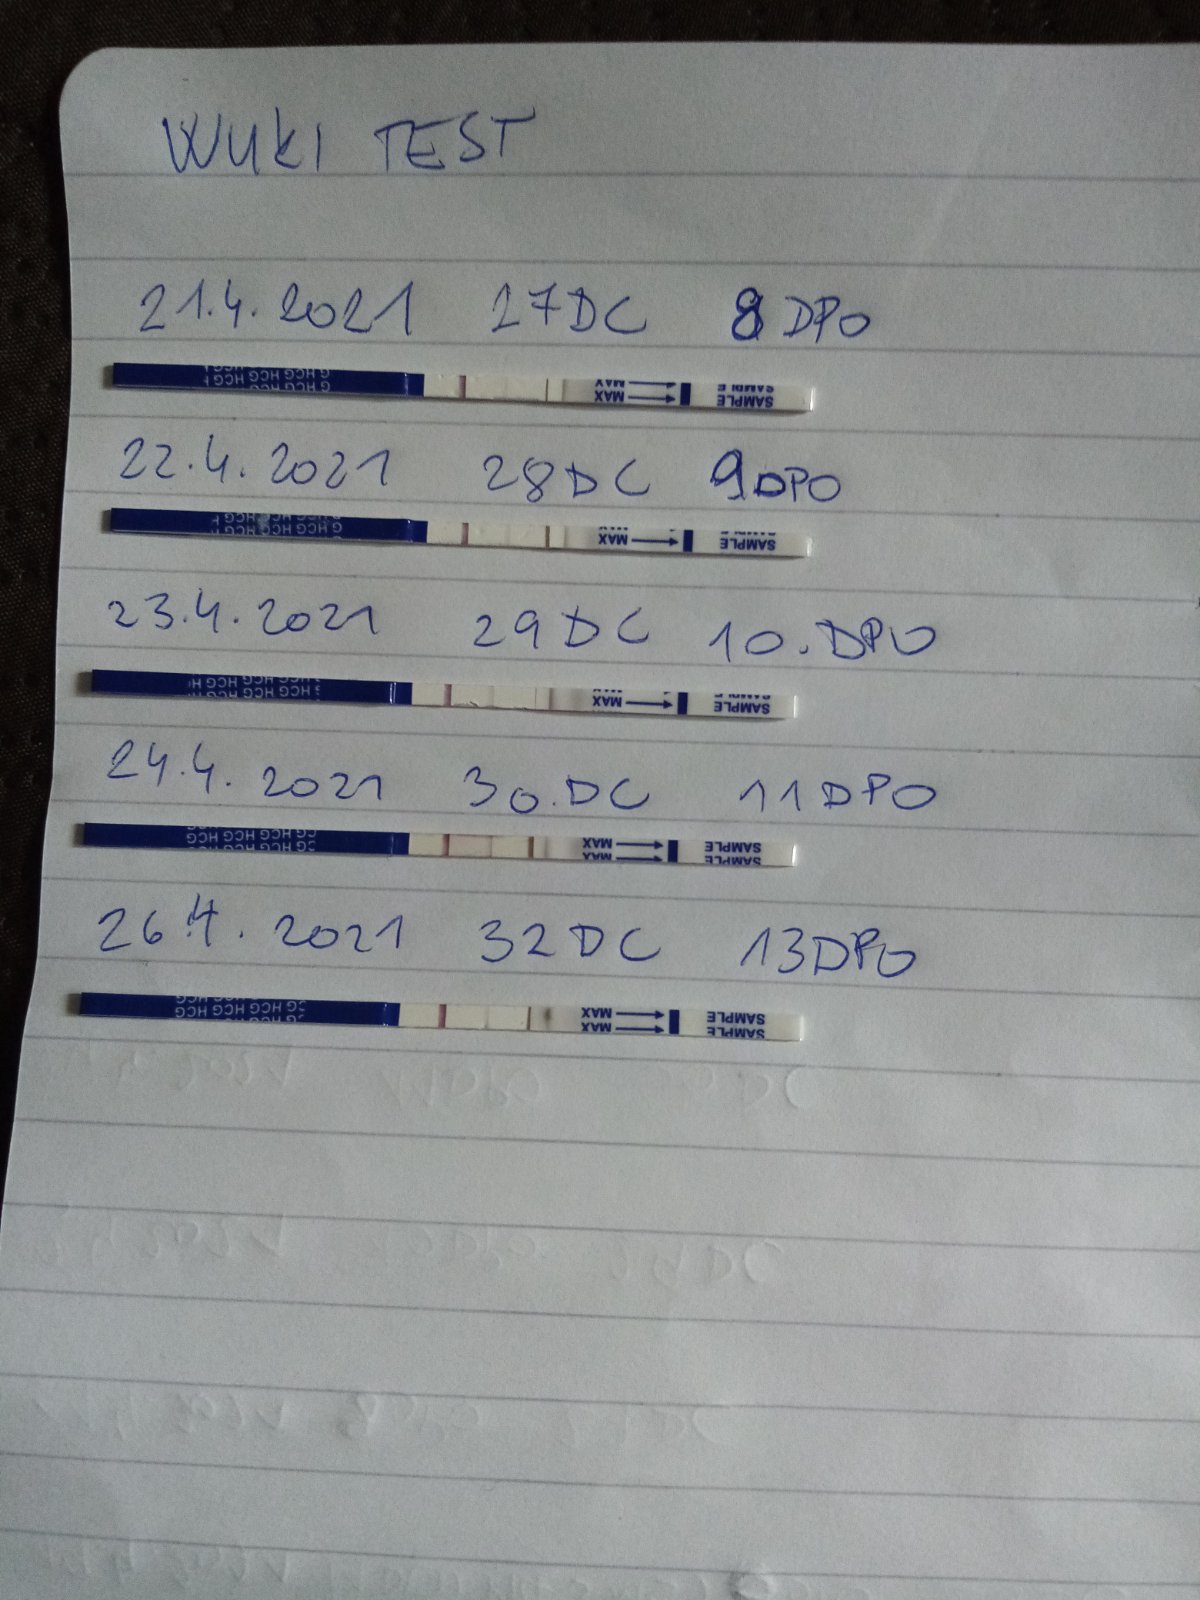 WUKI TEST
21.4.2021 27DC 8DPO
HCG HCG HCG
MAX SAMPLE
MAX SAMPLE
22.4.2021 28DC 9DPO
HCG HCG HCG
MAX SAMPLE
23.4.2021 29DC 10.DPO
HCG HCG HCG
MAX SAMPLE
24.4.2021 30.DC 11DPO
HCG HCG HCG
MAX SAMPLE
MAX SAMPLE
26.4.2021 32DC 13DPO
HCG HCG HCG
MAX SAMPLE
MAX SAMPLE